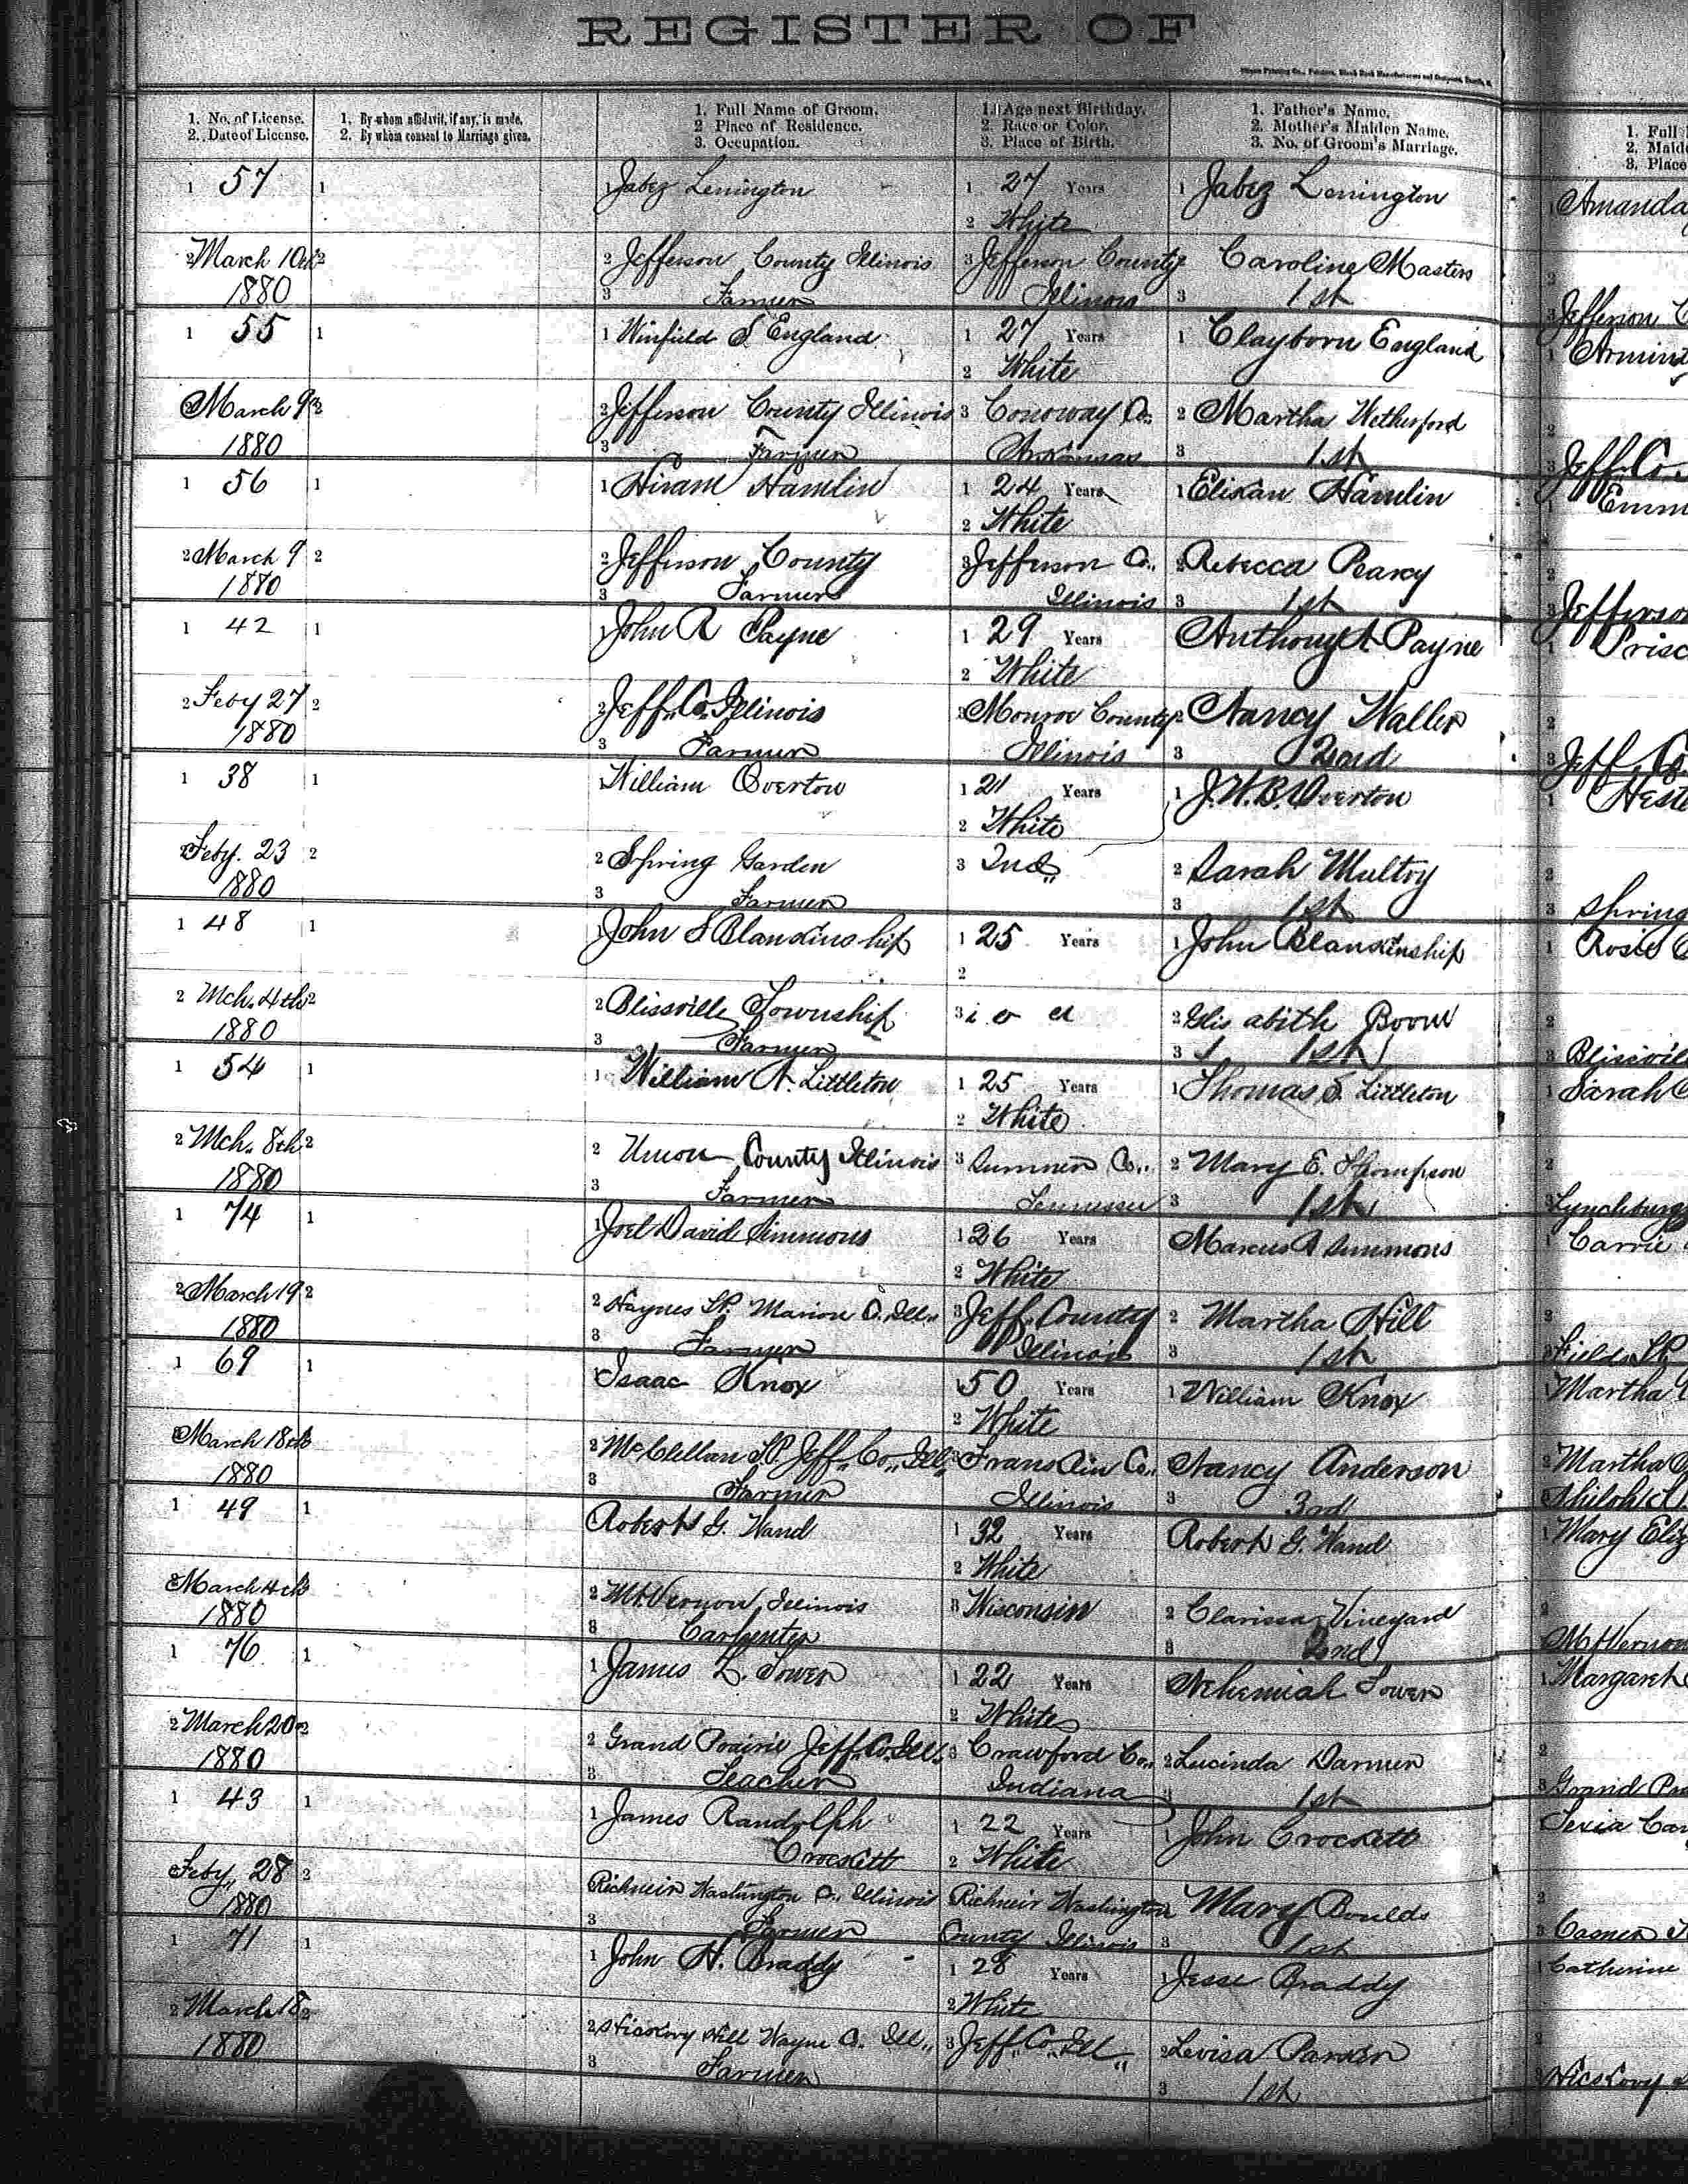 REGISTER OF
1. No. of License.
2. Date of License.
1. By whom affidavit, if any, is made.
2. By whom consent to Marriage given.
1. Full Name of Groom.
2 Place of Residence.
3. Occupation.
1. Age next Birthday.
2. Race or Color.
3. Place of Birth.
1. Father's Name.
2. Mother's Maiden Name.
3. No. of Groom's Marriage.
1. Full
2. Maid
3. Place
1 57 1 Jabez Lenington 1 27 Years 1 Jabez Lenington 1 Amanda
2 White
2 March 10th 2 2 Jefferson County Illinois 3 Jefferson County 2 Caroline Masters 2
1880 3 Farmer Illinois 3 1st 3 Jefferson C
1 55 1 1 Winfield S. England 1 27 Years 1 Clayborn England 1 Armint
2 White
2 March 9 2 2 Jefferson County Illinois 3 Conoway Co. 2 Martha Wetherford 2
1880 3 Farmer Arkansas 3 1st 3 Jeff. Co.
1 56 1 1 Hiram Hamlin 1 24 Years 1 Elikan Hamlin 1 Emm
2 White
2 March 9 2 2 Jefferson County 3 Jefferson Co., 2 Rebecca Pearcy 2
1880 3 Farmer Illinois 3 1st 3 Jefferso
1 42 1 1 John R Payne 1 29 Years Anthony A Payne 1 Prisc
2 White
2 Feby 27 2 2 Jeff. Co. Illinois 3 Monroe County 2 Nancy Waller 2
1880 3 Farmer Illinois 3 3 Jeff. Co.
1 38 1 William Overton 1 21 Years 1 J.W.B. Overton 1 Heste
2 White
2 Feby. 23 2 2 Spring Garden 3 Ind. 2 Sarah Multry 2
1880 3 Farmer 3 1st 3 Spring
1 48 1 1 John S Blankinship 1 25 Years 1 John Blankinship 1 Rosie
2
2 Mch. 4th 2 2 Blissville Township 3 2 Elis abith Boon 2
1880 3 Farmer 3 1st 3 Blissvil
1 54 1 1 William A. Littleton 1 25 Years 1 Thomas S. Littleton 1 Sarah
2 White
2 Mch. 8th 2 2 Union County Illinois 3 Sumner Co., 2 Mary E. Thompson 2
1880 3 Farmer Tennessee 3 1st 3 Lynchburg
1 74 1 1 Joel David Simmons 1 26 Years Marcus A Simmons 1 Carrie
2 White
2 March 19 2 2 Haynes TP. Marion Co. Ill., 3 Jeff. County 2 Martha Hill 2
1880 3 Farmer Illinois 3 1st 3 Fields TP
1 69 1 Isaac Knox 1 50 Years 1 William Knox 1 Martha
2 White
2 March 18th 2 McClellan TP. Jeff. Co., Ill. 3 Franklin Co., Nancy Anderson 2 Martha
1880 3 Farmer Illinois 3 3rd 3 Shiloh T
1 49 1 Robert G. Wand 1 32 Years Robert G. Wand 1 Mary Eliz
2 White
2 March 4th 2 Mt. Vernon, Illinois 3 Wisconsin 2 Clarissa Vineyard 2
1880 3 Carpenter 3 2nd Mt Vernon
1 76 1 1 James L. Tower 1 22 Years Nehemiah Tower 1 Margaret
2 White
2 March 20 2 2 Grand Prairie Jeff. Co. Ill. 3 Crawford Co., 2 Lucinda Darmer 2
1880 3 Teacher Indiana 3 1st 3 Grand Pra
1 43 1 1 James Randolph 1 22 Years 1 John Crockett Texia Car
Crockett 2 White
Feby., 28 2 Richview Washington Co., Illinois Richview Washington Mary Boulds 2
1880 3 Farmer County Illinois 3 1st 3 Casner T
1 71 1 1 John H. Braddy 1 28 Years 1 Jesse Braddy 1 Catherine
2 White
2 March 18 2 2 Hickory Hill Wayne Co. Ill., 3 Jeff. Co. Ill., 2 Levisa Parker 2
1880 3 Farmer 3 1st 3 Hickory